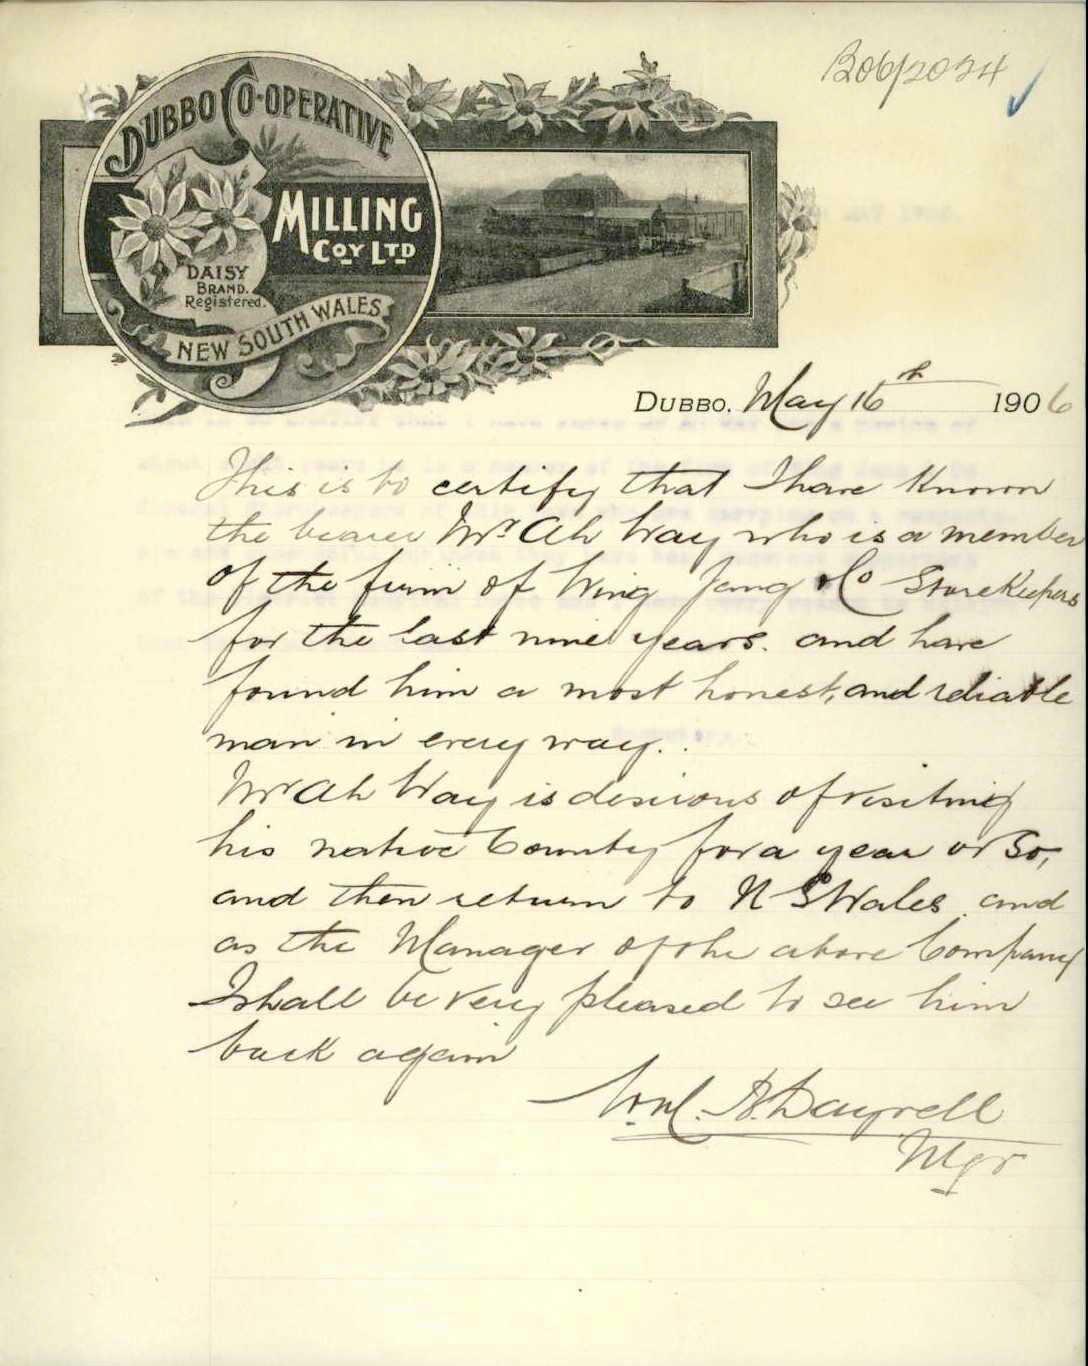 B06/2024
DUBBO CO-OPERATIVE
MILLING
COY LTD
DAISY
BRAND.
Registered.
NEW SOUTH WALES
DUBBO. May 16th 1906
This is to certify that I have Known
the bearer Mr Ah Way who is a member
of the firm of Wing Jang & Co StoreKeepers
for the last nine years. and have
found him a most honest, and reliable
man in every way.
Mr Ah Way is desirous of visiting
his native Country for a year or so,
and then return to N S Wales and
as the Manager of the above Company
I shall be very pleased to see him
back again
Dayrell
Mgr